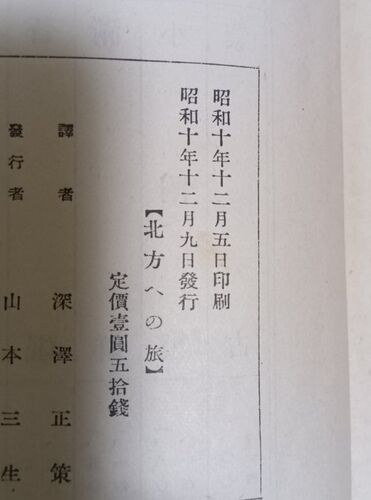 昭和十年十二月五日印刷
昭和十年十二月九日發行
【北方への旅】
定價壹圓五拾錢
譯者 深澤正策
發行者 山本三生